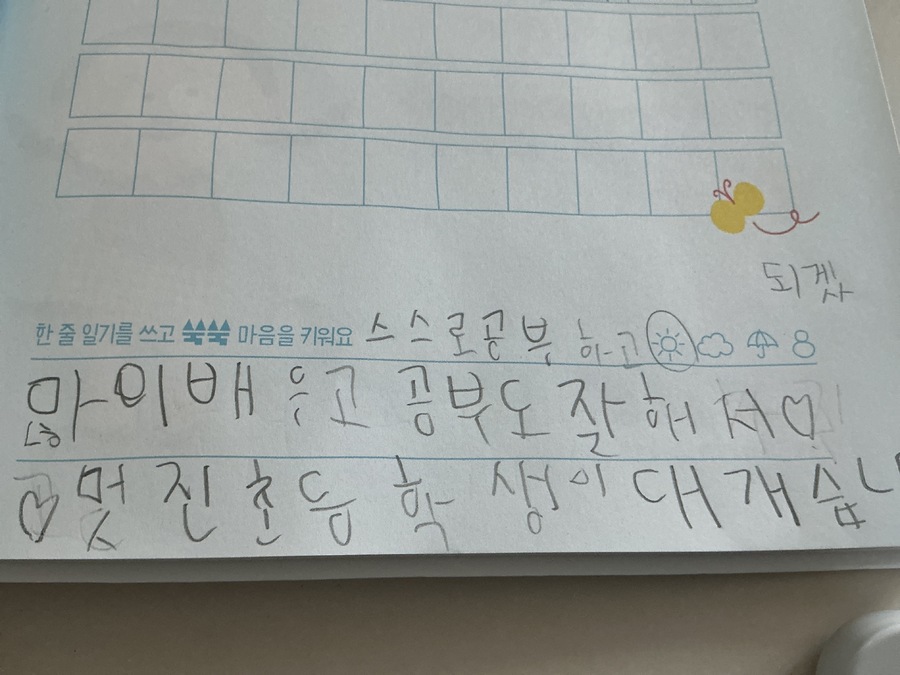 되겠
한 줄 일기를 쓰고 쑥쑥 마음을 키워요 스스로공부 하고
많이배우고 공부도 잘해서♡
♡멋진초등학생이대개습니